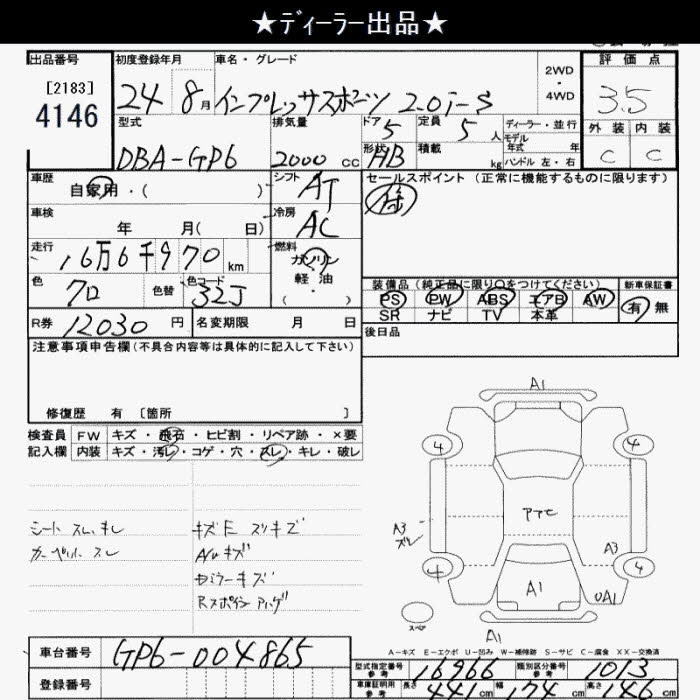 ★ディーラー出品★
出品番号
[2183]
4146
初度登録年月
24年 8月
車名・グレード
インプレッサスポーツ 2.0i-S
2WD
・
4WD
評価点
3.5
外装 内装
C C
型式
DBA-GP6
排気量
2000 cc
ドア 5
定員 5人
形状 HB
積載 kg
ディーラー・並行
モデル年式 年
ハンドル 左・右
車歴
自家用・( )
シフト AT
セールスポイント (正常に機能するものに限ります)
車検
年 月( 日)
冷房 AC
走行
16万6千970 km
燃料
ガソリン
軽油
( ・ )
色
クロ
色替
色コード
32J
装備品 (純正品に限り○をつけてください)
PS PW ABS エアB AW
SR ナビ TV 本革
新車保証書
有 無
R券 12030円
名変期限 月 日
後日品
注意事項申告欄(不具合内容等は具体的に記入して下さい)
修復歴 有 [箇所 ]
検査員
記入欄
FW キズ・飛石・ヒビ割・リペア跡・×要
内装 キズ・汚レ・コゲ・穴・スレ・キレ・破レ
シート スレ、キレ
カーペット スレ
キズE スリキズ
A/wキズ
ミラーキズ
Rスポイラー ハゲ
A1
4 4
PTC
A3
ズレ
A3
4 4
A1
UA1
スペア
A1
A-キズ E-エクボ U-凹み W-補修跡 S-サビ C-腐食 XX-交換済
車台番号 GP6-004865
登録番号
型式指定番号
参考
16966
類別区分番号
参考
1013
車庫証明用
参考
長さ 441cm 幅 174cm 高さ 146cm